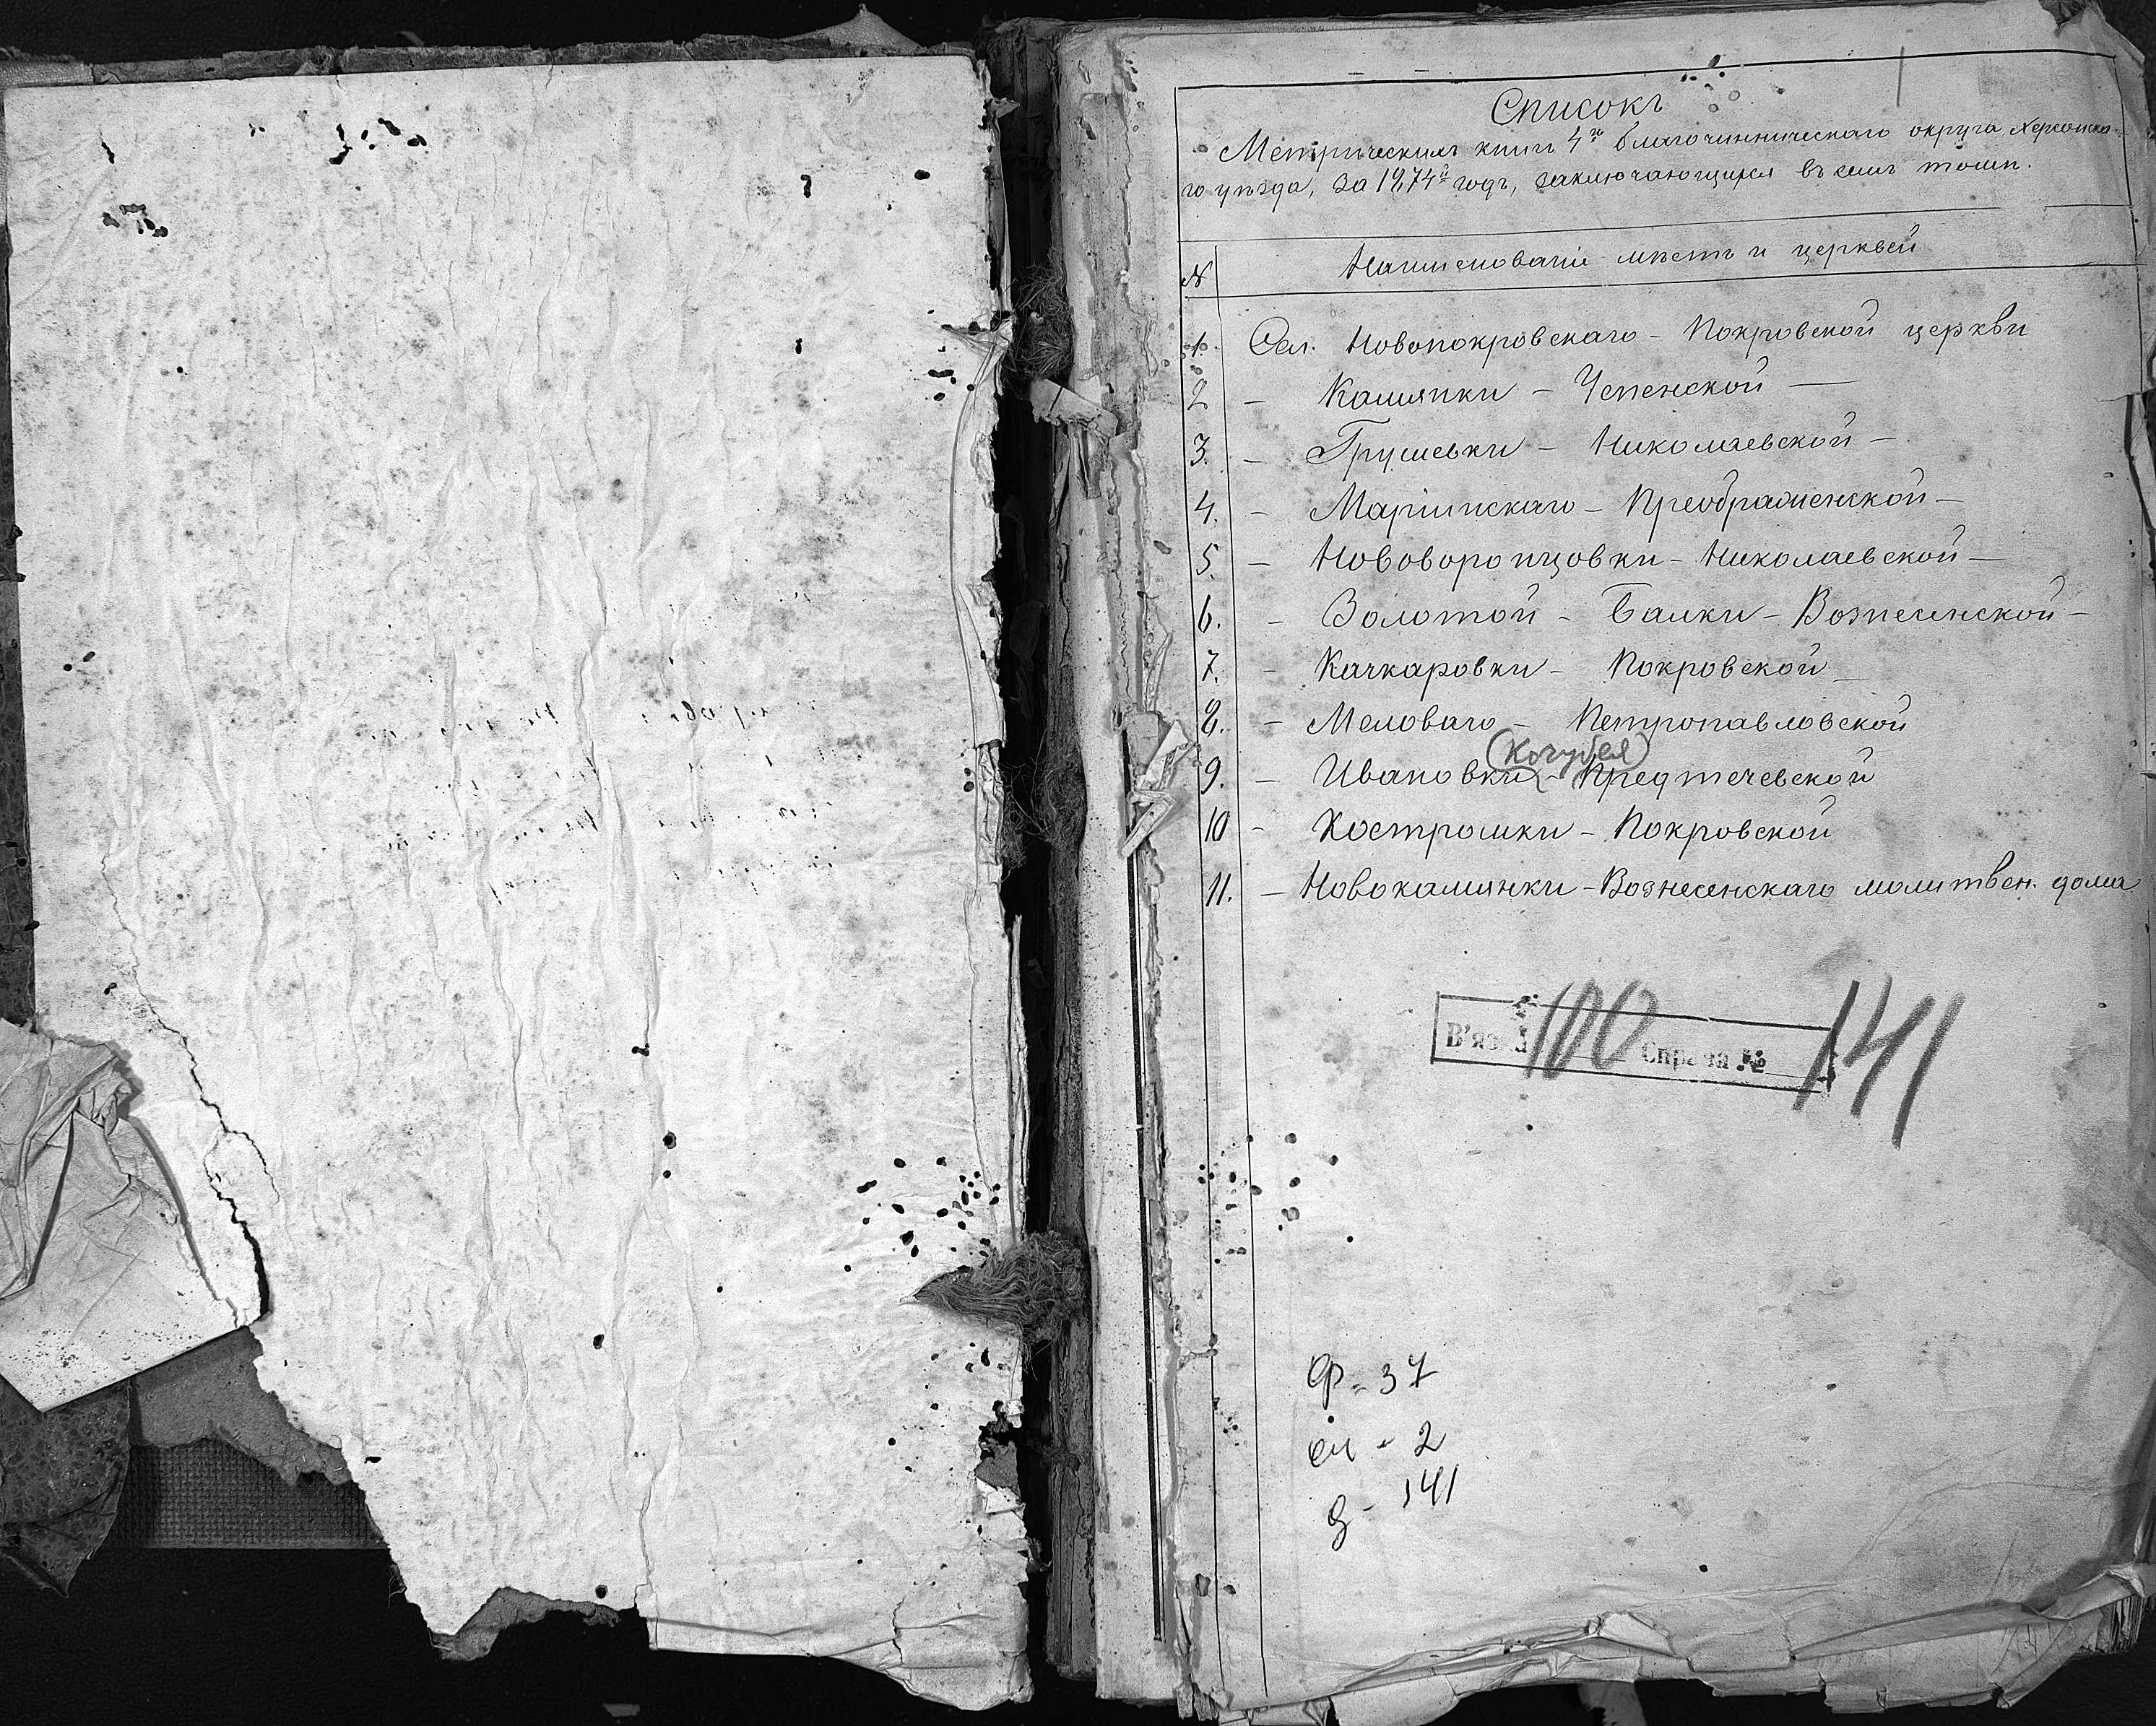 Списокъ
Метрическихъ книгъ 4го благочинническаго округа, Херсонска-
го уѣзда, за 1874й годъ, заключающихся въ семъ томѣ.
№ Наименованіе мѣстъ и церквей
1. Сел. Новопокровскаго – Покровской церкви
2 – Камянки – Успенской –
3. – Грушевки – Николаевской –
4. – Маріинскаго – Преображенской –
5. – Нововоронцовки – Николаевской –
6. – Золотой – Балки – Вознесенской –
7. – Качкаровки – Покровской –
8. – Меловаго – Петропавловской
(Кочубея)
9. – Ивановки – Предтечевской
10 – Костромки – Покровской
11. – Новокамянки – Вознесенскаго молитвен. дома
В'язка 100 Справа № 141
Ф. 37
оп - 2
д - 141